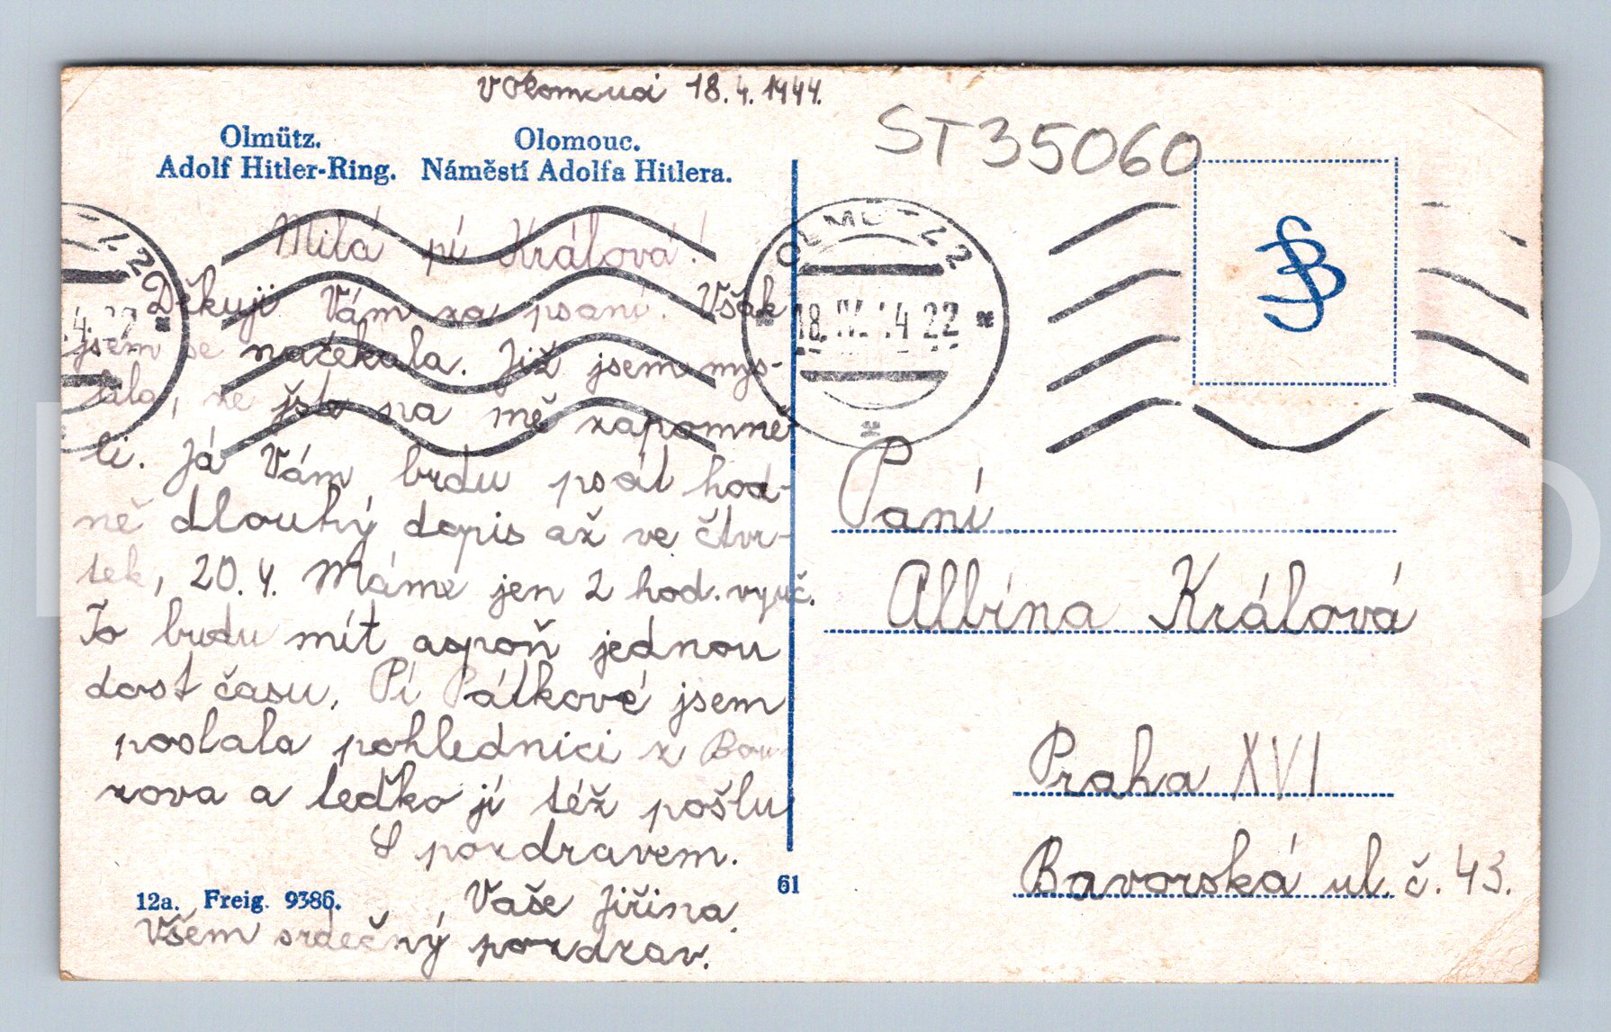 v Olomouci 18.4.1944.
ST35060
Olmütz. Olomouc.
Adolf Hitler-Ring. Náměstí Adolfa Hitlera.
Milá pí Králová!
Děkuji Vám za psaní. Však
jsem se načekala. Již jsem mys-
lela, že jste na mě zapomně
li. Já Vám budu psát hod-
ně dlouhý dopis až ve čtvr-
tek, 20.4. Máme jen 2 hod. vyuč.
To budu mít aspoň jednou
dost času. Pí Pátkové jsem
poslala pohlednici z Bou
zova a teďko jí též pošlu
S pozdravem.
Vaše Jiřina.
Všem srdečný pozdrav.
12a. Freig. 9386.
61
OLMÜTZ 2
18.IV.44 22
OLMÜTZ 2
Paní
Albína Králová
Praha XVI
Bavorská ul. č. 43.